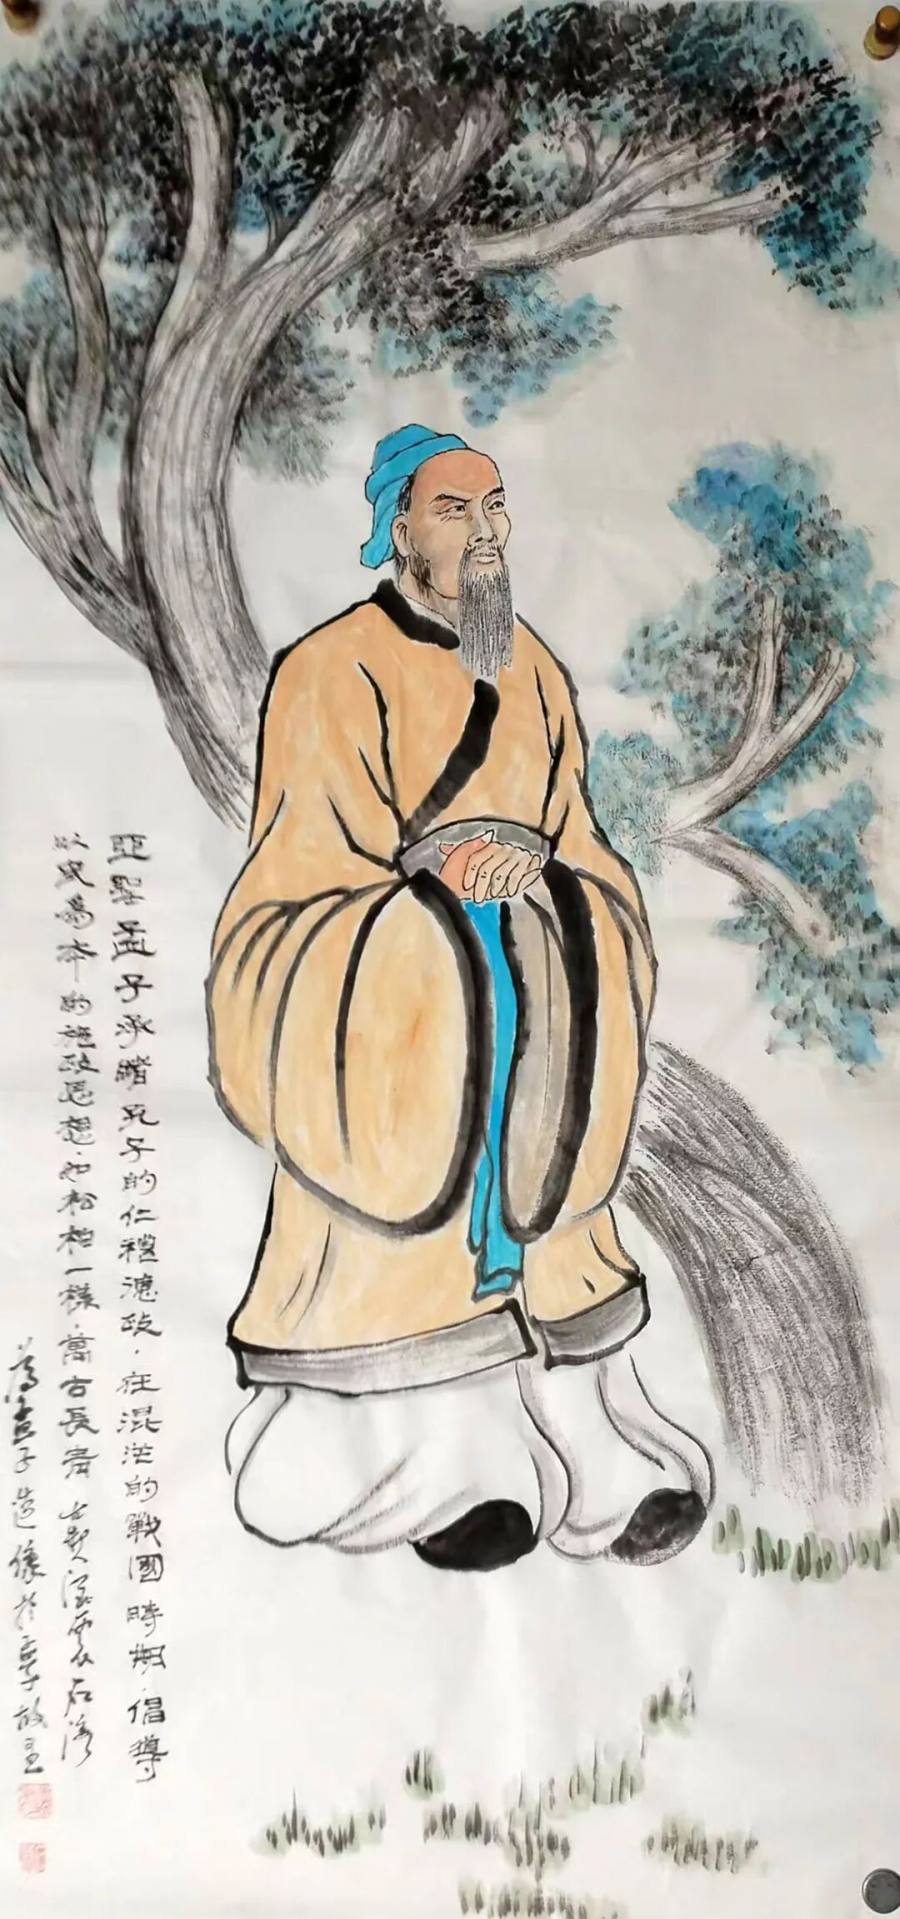 亞聖孟子承踏孔子的仁禮德政．在混茫的戰國時期．倡導
以民為本的施政思想．如松柏一樣．萬古長青
為孟子造像於